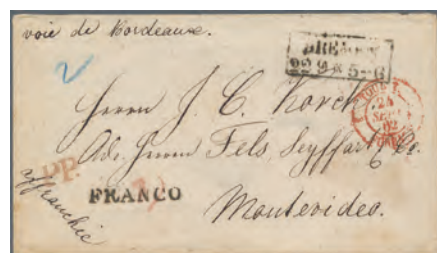 voie de Bordeaux.
2
BREMEN
22 9 5-6
24
SEPT
62
Herrn J. C. Korck
Adr. Herrn Fels, Seyffart & Co.
P.P.
FRANCO
affranchie
Montevideo.